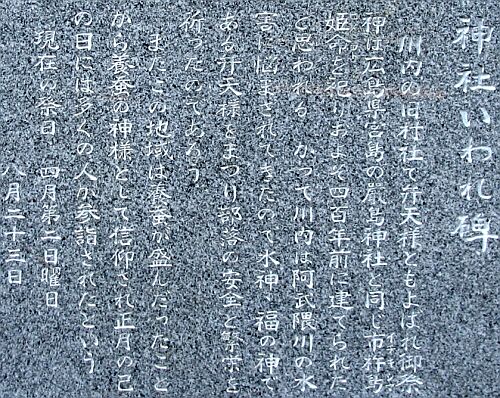 神社いわれ碑
川内の旧村社で弁天様ともよばれ御祭
神は広島県宮島の厳島神社と同じ市杵島
姫命を祀りおよそ四百年前に建てられた
と思われる かつて川内は阿武隈川の水
害に悩まされてきたので水神・福の神で
ある弁天様をまつり部落の安全と繁栄を
祈ったのであろう
またこの地域は養蚕が盛んだったこと
から養蚕の神様として信仰され正月の己
の日には多くの人が参詣されたという
現在の祭日 四月第二日曜日
八月二十三日